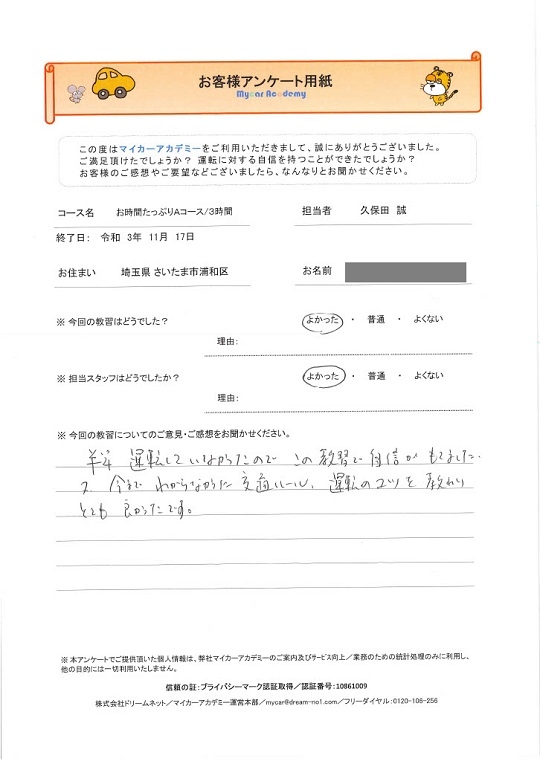 お客様アンケート用紙
Mycar Academy
この度はマイカーアカデミーをご利用いただきまして、誠にありがとうございました。
ご満足頂けたでしょうか? 運転に対する自信を持つことができたでしょうか?
お客様のご感想やご要望などございましたら、なんなりとお聞かせください。
コース名 お時間たっぷりAコース/3時間 担当者 久保田 誠
終了日: 令和 3年 11月 17日
お住まい 埼玉県 さいたま市浦和区 お名前
※ 今回の教習はどうでした? よかった ・ 普通 ・ よくない
理由:
※ 担当スタッフはどうでしたか? よかった ・ 普通 ・ よくない
理由:
※ 今回の教習についてのご意見・ご感想をお聞かせください。
運転していなかったので この教習で自信がもてました.
又 今まで わからなかった 交通ルール、運転のコツを教わり
とても 良かったです。
※ 本アンケートでご提供頂いた個人情報は、弊社マイカーアカデミーのご案内及びサービス向上／業務のための統計処理のみに利用し、
他の目的には一切利用いたしません。
信頼の証:プライバシーマーク認証取得／認証番号:10861009
株式会社ドリームネット／マイカーアカデミー運営本部／mycar@dream-no1.com／フリーダイヤル:0120-106-256